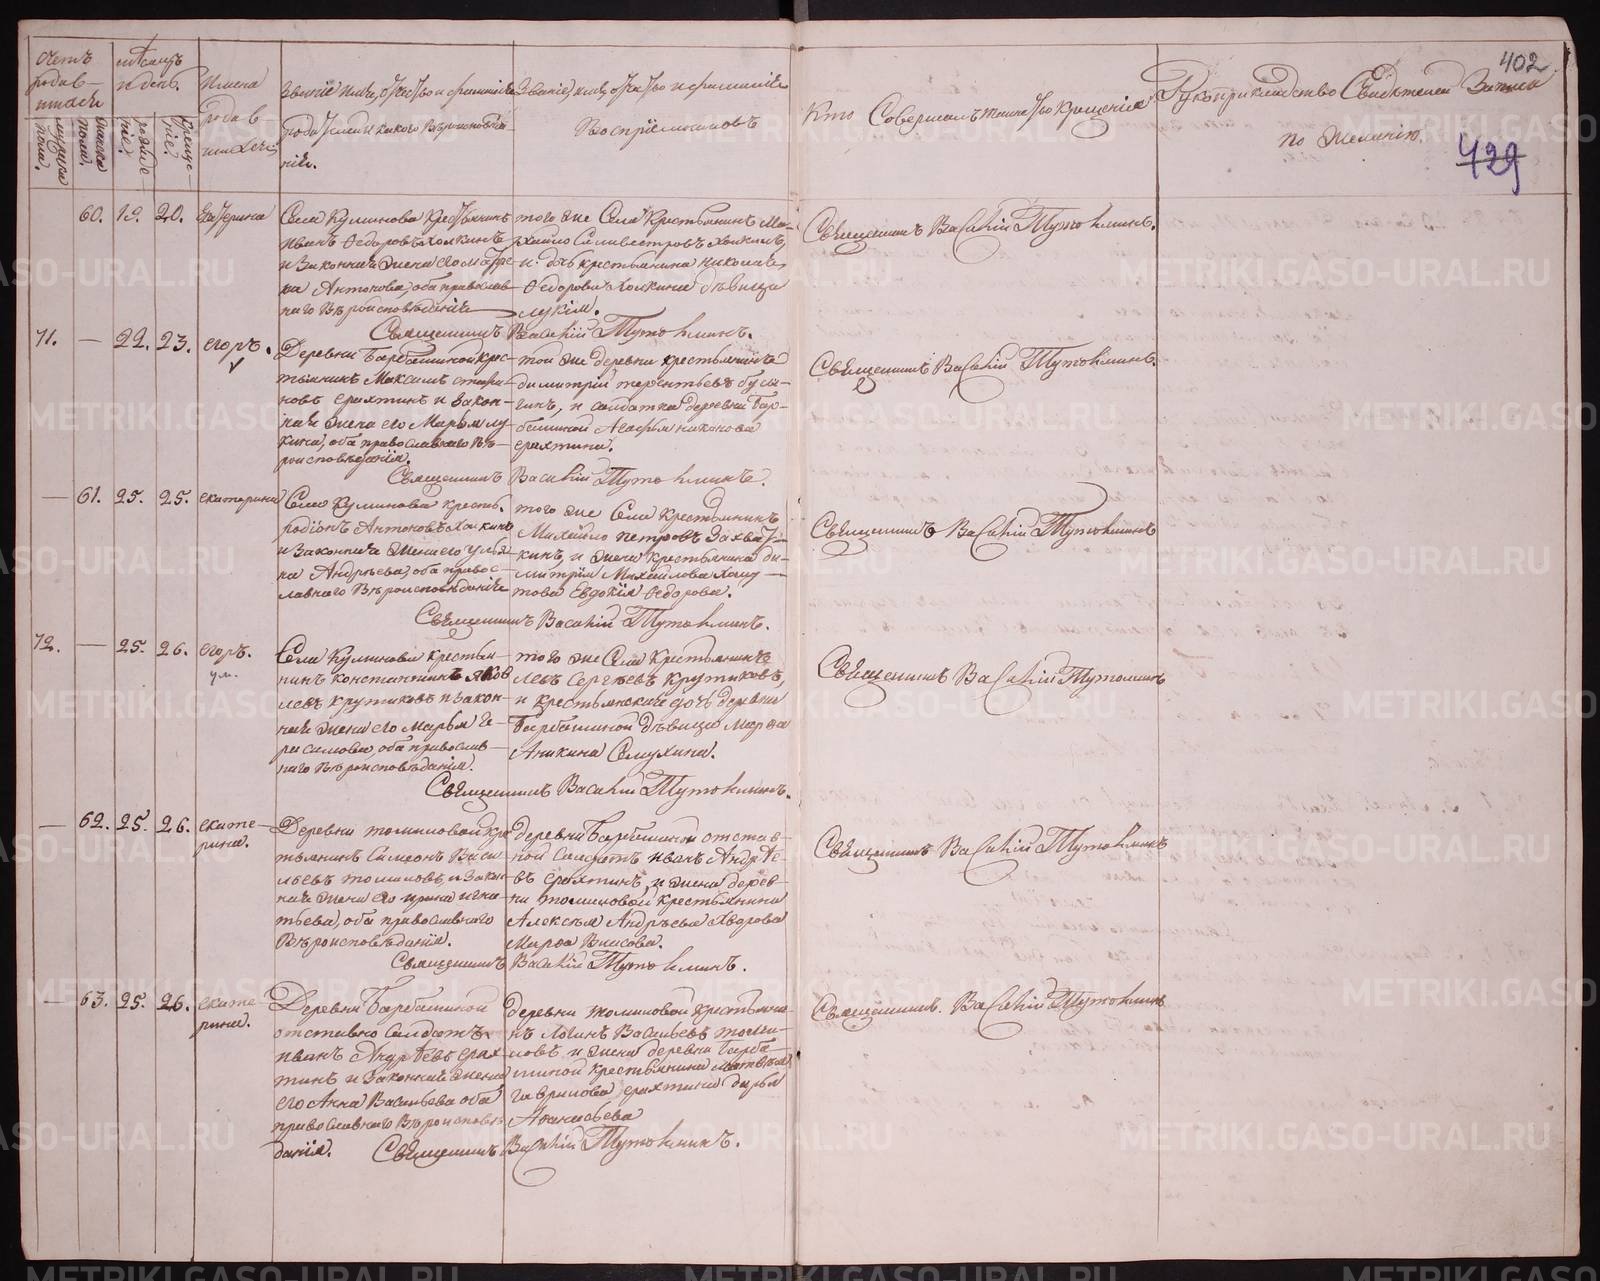 402
429
Счетъ родив-шихся
мужеска пола.
женска пола.
мѣсяцъ и день.
рожде-ніе.
креще-ніе.
Имена родив-шихся
Званіе, имя, отчество и фамилія
родителей и какого вѣроисповѣда-
нія.
Званіе, имя, отчество и фамилія
Воспріемниковъ
Кто Совершалъ таинство крещенія
Рукоприкладство Свидѣтелей Записи
по желанію.
60. 19. 20. Екатерина
Села Куминова Крестьянинъ
Иванъ Федоровъ Холкинъ
и Законная жена его Мавре-
на Антонова, оба православ-
наго Вѣроисповѣданія
того же Села Крестьянинъ Ми-
хайло Селивестровъ Холкинъ,
и дочь крестьянина Николая
Федорова Холкина дѣвица
Священникъ Василій Тутолминъ.
Священникъ Василій Тутолминъ.
71. — 22. 23. Егоръ.
Деревни Барбашиной Крес-
тьянинъ Максимъ
Ерахтинъ и Закон-
ная жена его Марья Лу-
кина, оба православнаго Вѣ-
роисповѣданія.
той же деревни крестьянинъ
Димитрій Терентьевъ Бусы-
гинъ, и солдатка деревни Бар-
башиной Агафья Никонова
Ерахтина.
Священникъ Василій Тутолминъ.
Священникъ Василій Тутолминъ.
— 61. 25. 25. Екатерина
Села Куминова Кресть.
Родіонъ Антоновъ Холкинъ
и Законная жена его Улья-
на Андреева, оба правос-
лавнаго Вѣроисповѣданія
того же Села Крестьянинъ
Михайло Петровъ Захват-
кинъ, и жена Крестьянина Ди-
митрія Михайлова
Евдокія Федорова.
Священникъ Василій Тутолминъ.
Священникъ Василій Тутолминъ
72. — 25. 26. Егоръ.
ум.
Села Куминова Крестья-
нинъ Константинъ Яков-
левъ Крутиковъ и Закон-
ная жена его Марья Ге-
расимова, оба православ-
наго Вѣроисповѣданія.
того же Села Крестьянинъ
Левъ Сергѣевъ Крутиковъ,
и крестьянская дочь деревни
Барбашиной дѣвица Марѳа
Аникина
Священникъ Василій Тутолминъ.
Священникъ Василій Тутолминъ
— 62. 25. 26. Екате-
рина.
Деревни Томиловой Кре-
стьянинъ Симеонъ Васи-
льевъ Томиловъ, и Закон-
ная жена его Ирина Игна-
тьева, оба православнаго
Вѣроисповѣданія.
Деревни Барбашиной отстав-
ной Солдатъ Иванъ Андрѣе-
въ Ерахтинъ, и жена дерев-
ни Томиловой Крестьянина
Алексѣя Андрѣева
Марѳа Власова.
Священникъ Василій Тутолминъ.
Священникъ Василій Тутолминъ
— 63. 25. 26. Екате-
рина.
Деревни Барбашиной
отставно Солдатъ
Иванъ Андрѣевъ Ерах-
тинъ и Законная жена
его Анна Васильева оба
православнаго Вѣроисповѣ-
данія.
Деревни Томиловой Крестьяни-
нъ Логинъ Васильевъ Томи-
ловъ и жена деревни Барба-
шиной Крестьянина Матвѣя
Гаврилова Ерахтина Дарья
Афанасьева
Священникъ Василій Тутолминъ.
Священникъ. Василій Тутолминъ
METRIKI.GASO-URAL.RU